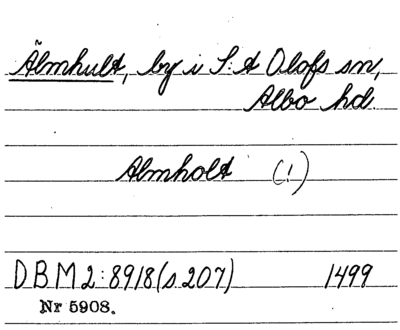 Älmhult, by i S:t Olofs sn,
Albo hd.
Almholt (!)
DBM2:8918(s 207) 1499
Nr 5908.